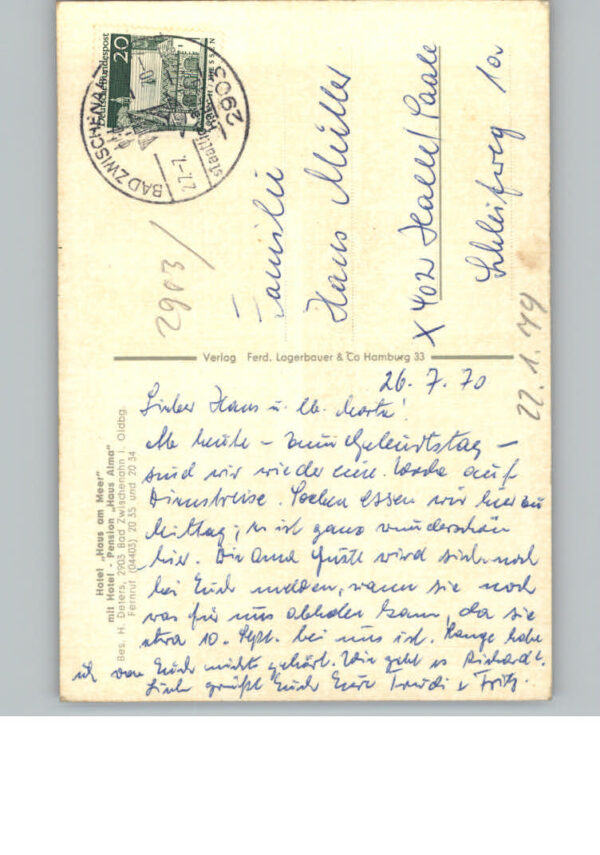 Deutsche Bundespost
20
LORSCH / HESSEN
2903
BAD ZWISCHENAHN
staatlich
27.7.
2903/
Familie
Hans Müller
X 402 Halle/Saale
Schleifweg 1a
Verlag Ferd. Lagerbauer & Co Hamburg 33
22.1.79
Hotel „Haus am Meer"
mit Hotel - Pension „Haus Alma"
Bes. H. Deters, 2903 Bad Zwischenahn i. Oldbg.
Fernruf (04403) 20 35 und 20 34
26.7.70
Lieber Hans u. lb. Marta!
Ab heute – zum Geburtstag –
sind wir wieder eine Woche auf
Dienstreise. Soeben essen wir hier zu
Mittag; es ist ganz wunderschön
hier. Die Guste wird sich noch
bei Euch melden, wann sie noch
was für uns abholen kann, da sie
etwa 10. Sept. bei uns ist. Lange habe
ich von Euch nichts gehört. Wie geht es Richard?
Lieb grüßt Euch Eure Trudi u Fritz.